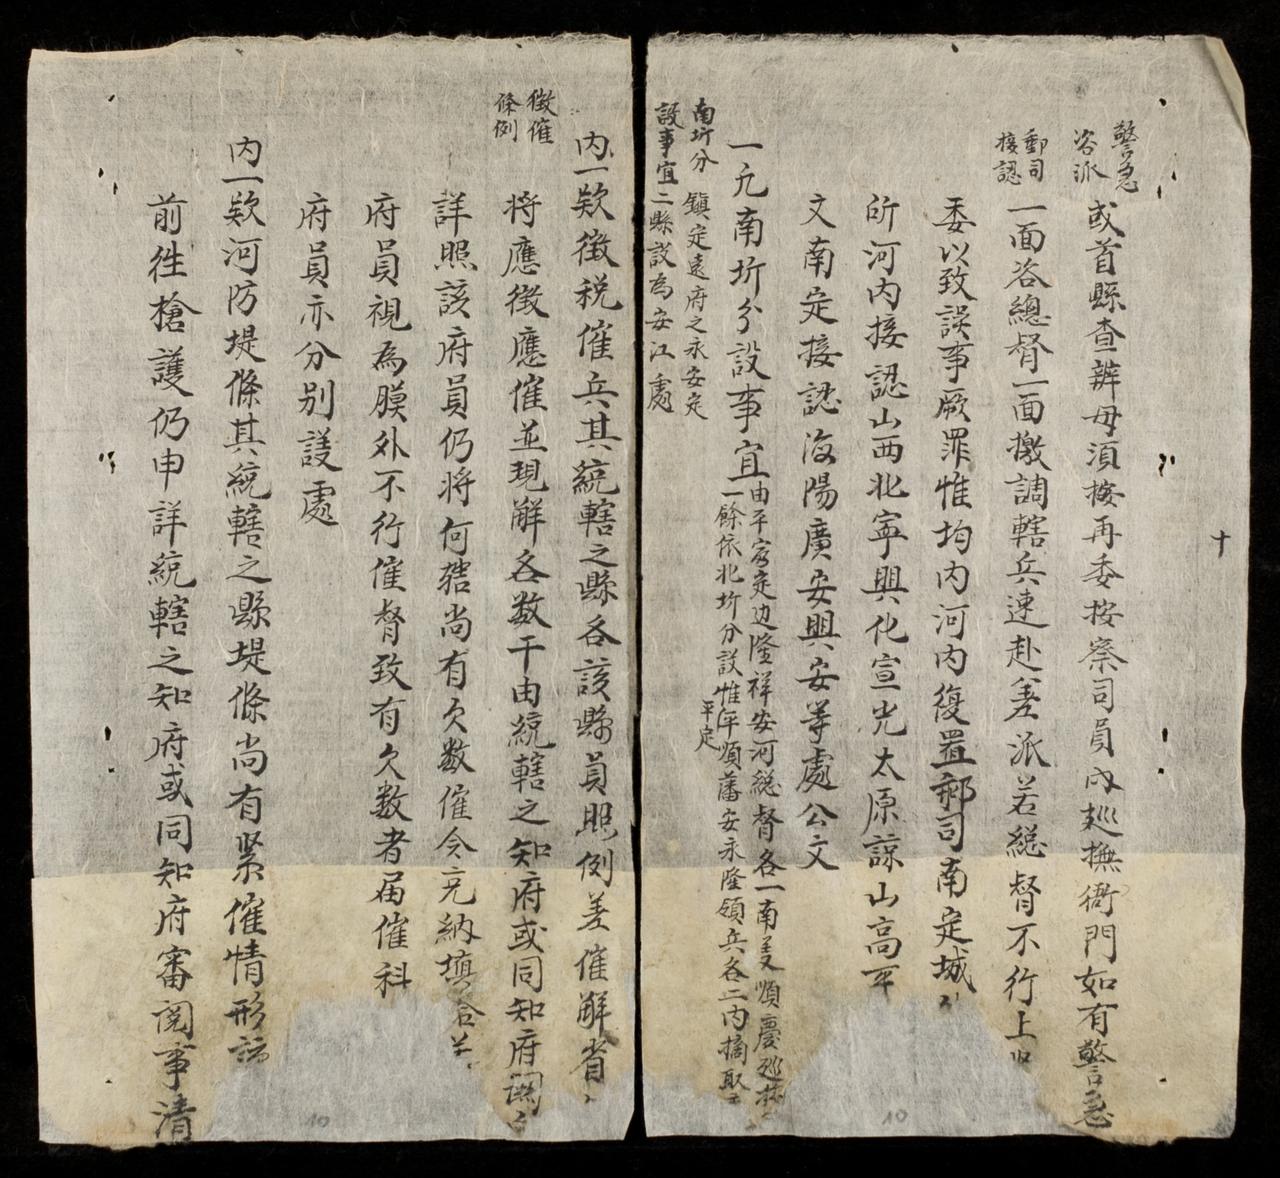 十
警急
咨派
或首縣查辨毋須擬再委按察司員內廵撫衙門如有警急
郵司
接認
一面咨總督一面撽調轄兵速赴差派若総督不行上
委以致誤事厥罪惟均內河內復置郵司南定城
所河內接認山西北寧興化宣光太原諒山高平
文南定接認海陽廣安興安等處公文
一凢南圻分設事宜
由平富定边隆祥安河総督各一南義順慶廵撫
一餘依北圻分設惟平順藩安永隆領兵各二內摘取
平定
南圻分
設事宜
鎮定遠府之永安定
二縣設為安江處
內一欵徴税催兵其統轄之縣各該縣員照例差催觧省
徴催
條例
将應徴應催並現觧各数干由統轄之知府或同知府
詳照該府員仍将何轄尚有欠数催令充納填合
府員視為膜外不行催督致有欠数者届催科
府員亦分别議處
內一欵河防堤條其統轄之縣堤條尚有緊催情形該
前徃搶護仍申詳統轄之知府或同知府審閲事清
10
10